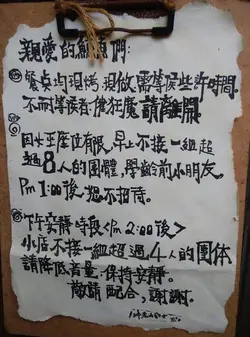 親愛的們:
餐點均現烤.現做.需等候些許時間.
不耐等候者 請離開
因小店座位有限,早上不接一組超
過8人的團體,學齡前小朋友.
Pm 1:00後,恕不招待.
下午安靜時段<Pm 2:00後>
小店不接一組超過4人的團体
請降低音量.保持安靜.
敬請配合,謝謝.